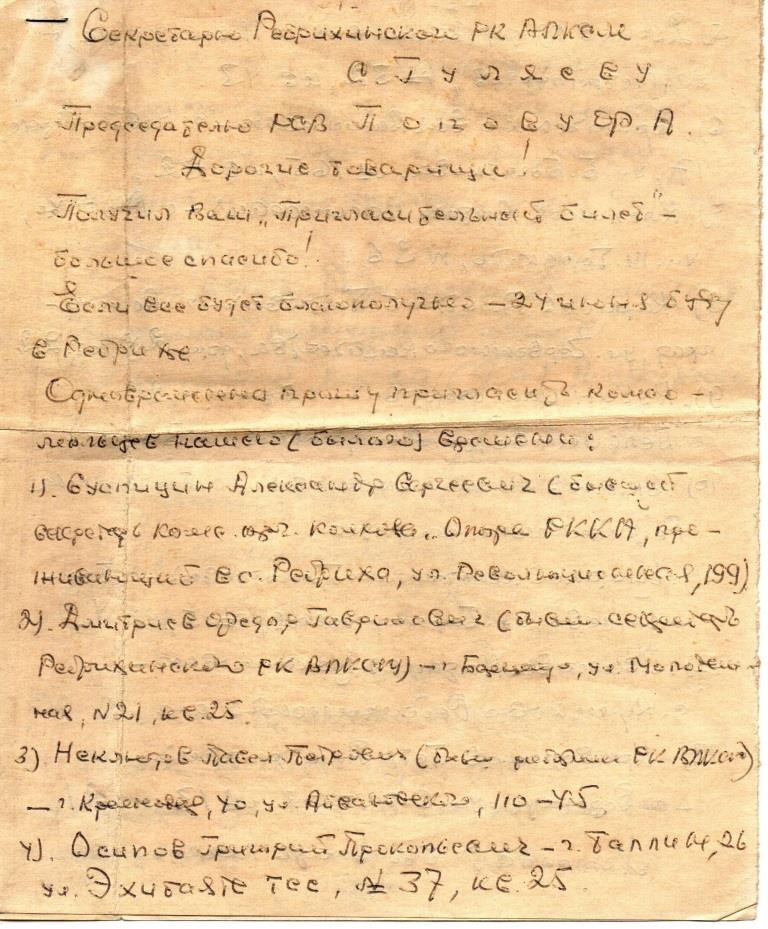 Секретарю Ребрихинского РК ВЛКСМ
С Т у л я е в у
Председателю РСВ П о г о в у Ф. А.
Дорогие товарищи!
Получил Ваш „Пригласительный билет" –
большое спасибо!
Если все будет благополучно – 24 июня буду
в Ребрихе
Одновременно прошу пригласить комсо –
мольцев нашего (былого) времени:
1). Суспицин Александр Сергеевич (бывший
секретарь комс. орг. колхоза „Опора РККА, про –
живающий в с. Ребриха, ул. Революционная, 199)
2). Дмитриев Федор Гаврилович (бывш. секретарь
Ребрихинского РК ВЛКСМ) – г. ул. Молодеж –
ная, N21, кв. 25.
3) Неклюдов Павел Петрович (бывш РК ВЛКСМ)
– г. 40, ул. Айвазовского, 110 – 45
4). Осипов Григорий Прокопьевич – г. Таллин, 26
ул. Эхитаяте тее, № 37, кв. 25.